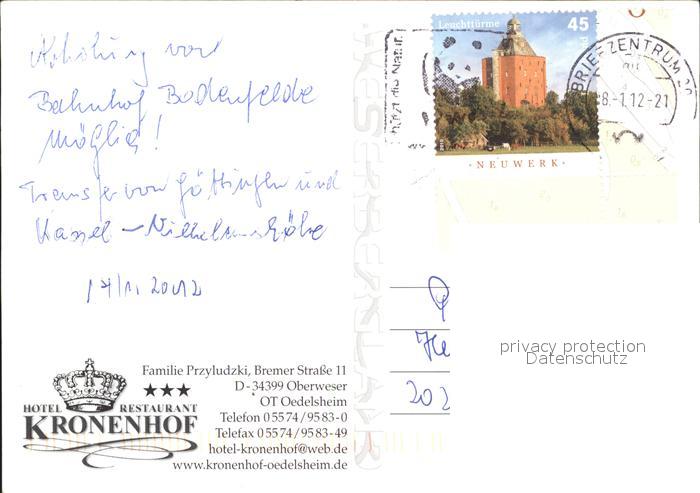 Abholung von
Bahnhof Bodenfelde
möglich!
Transfer von Göttingen und
Kassel - Wilhelmshöhe
2012
Leuchtturme
45
NEUWERK
BRIEFZENTRUM
8.-1.12-21
WESERBERGLAND
He
202
privacy protection
Datenschutz
HOTEL RESTAURANT
KRONENHOF
Familie Przyludzki, Bremer Straße 11
D-34399 Oberweser
OT Oedelsheim
Telefon 0 55 74 / 95 83-0
Telefax 0 55 74 / 95 83-49
hotel-kronenhof@web.de
www.kronenhof-oedelsheim.de